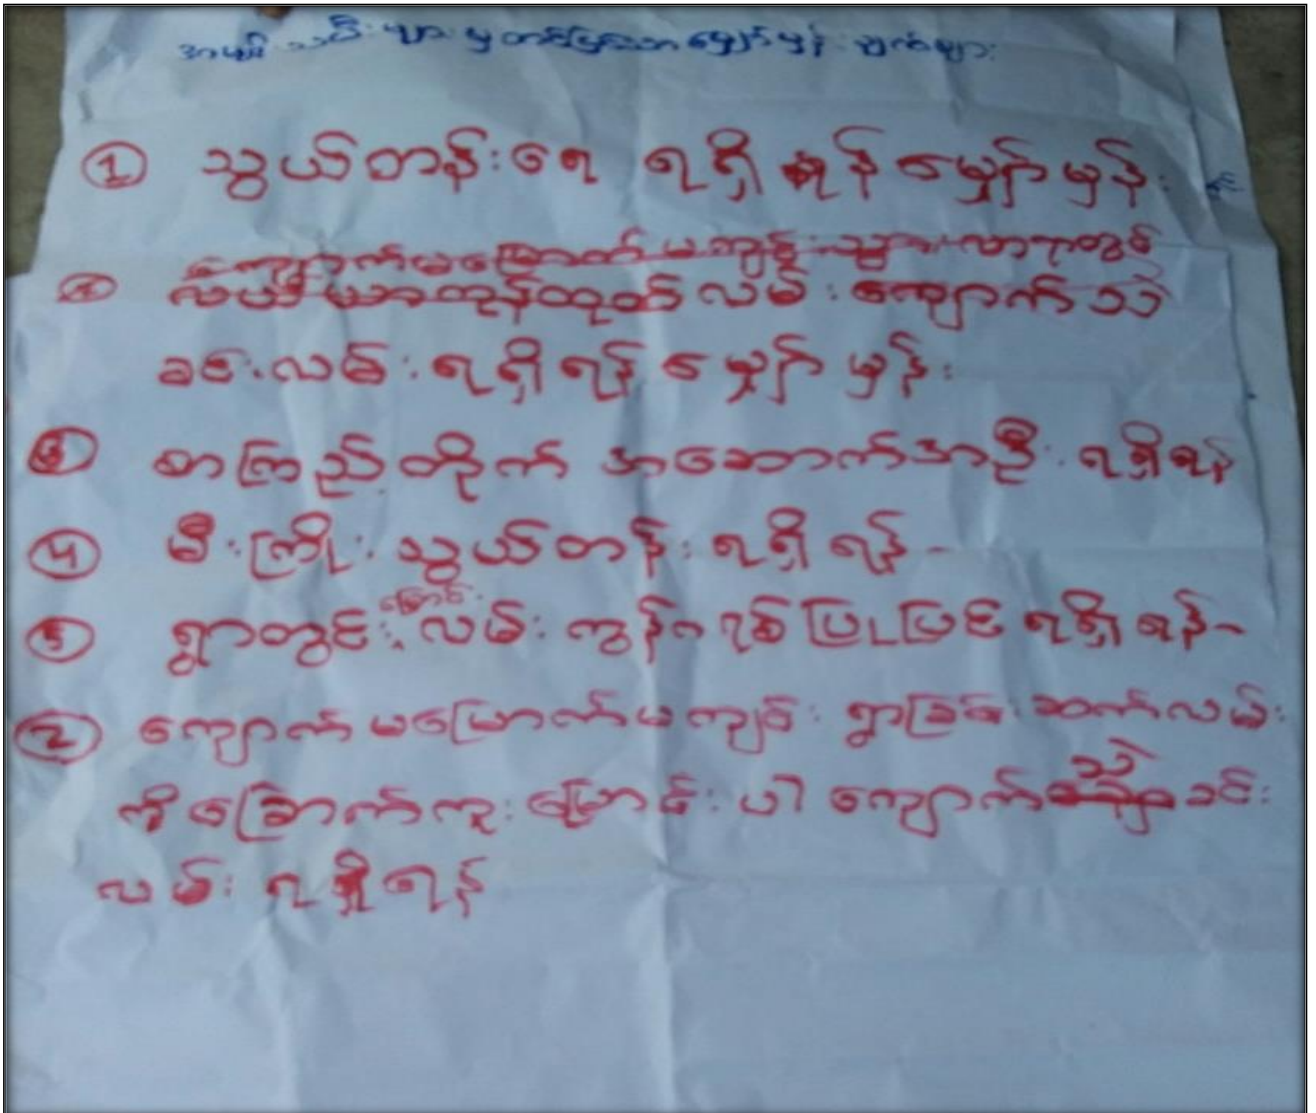 အမျိုးသမီးများမှ တင်ပြသော မျှော်မှန်းချက်များ
① သွယ်တန်းရေ ရရှိရန် မျှော်မှန်း
ကျောက်မမြောက်မကျင်းသွားလာရာတွင်
လယ်ယာထုန်ထုတ်လမ်း ကျောက်သဲ
ခင်းလမ်း ရရှိရန် မျှော်မှန်း
③ စာကြည့်တိုက် အဆောက်အဦး ရရှိရန်
④ မီးကြိုး သွယ်တန်း ရရှိရန်-
⑤ ရွာတွင်း မြောင်း လမ်း ကွန်ကရစ် ပြုပြင် ရရှိရန်-
② ကျောက်မမြောက်မကျင်း ရွာခြင်းဆက်လမ်း
ကိုခြောက်ကူးမြောင်းပါ ကျောက်သဲခင်း
လမ်း ရရှိရန်